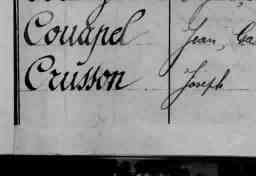 Couapel Jean,
Crusson Joseph